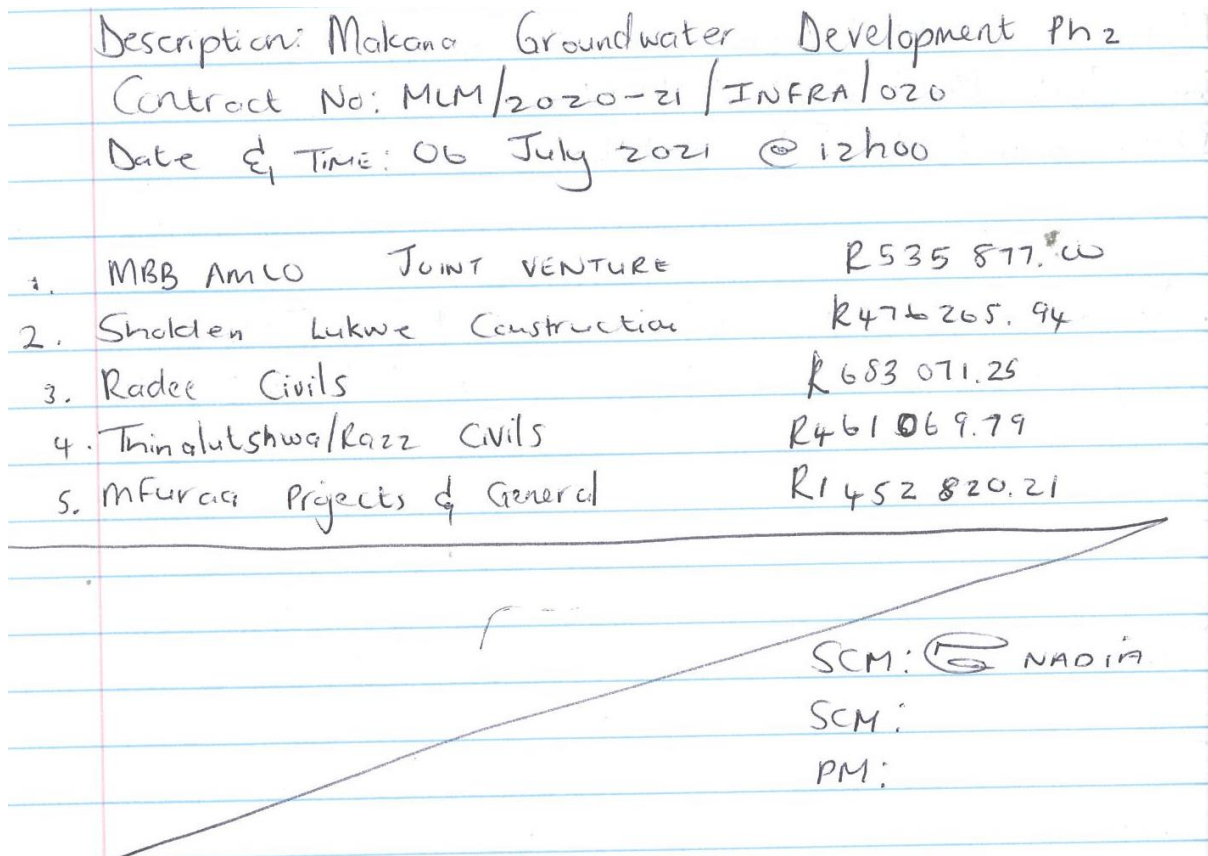 Description: Makana Groundwater Development Ph 2
Contract No: MLM/2020-21/INFRA/020
Date & TIME: 06 July 2021 @ 12h00
1. MBB AMCO JOINT VENTURE R535 877.00
2. Sholden Lukwe Construction R476 265.94
3. Radee Civils R683 071.25
4. Thinalutshwa/Razz Civils R461 069.79
5. Mfuraa Projects & General R1 452 820.21
SCM: NADIA
SCM:
PM: